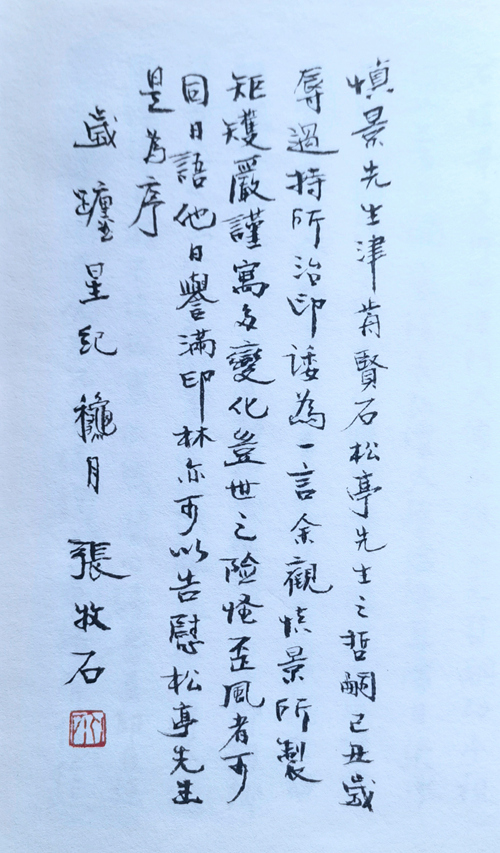 慎景先生津肯賢石松亭先生之哲嗣己丑歲
辱過持所治印諉為一言余觀慎景所製
矩矱嚴謹寓多變化豈世之险怪歪風者可
同日語他日譽滿印林亦可以告慰松亭先生
是為序
歲躔星紀龝月 張牧石